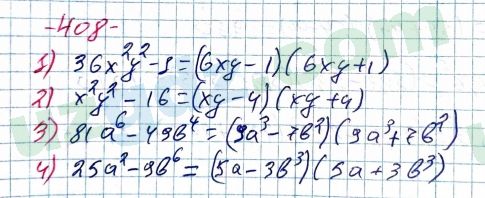 -408-
1) 36x²y²-1=(6xy-1)(6xy+1)
2) x²y²-16=(xy-4)(xy+4)
3) 81a⁶-49b⁴=(9a³-7b²)(9a³+7b²)
4) 25a²-9b⁶=(5a-3b³)(5a+3b³)